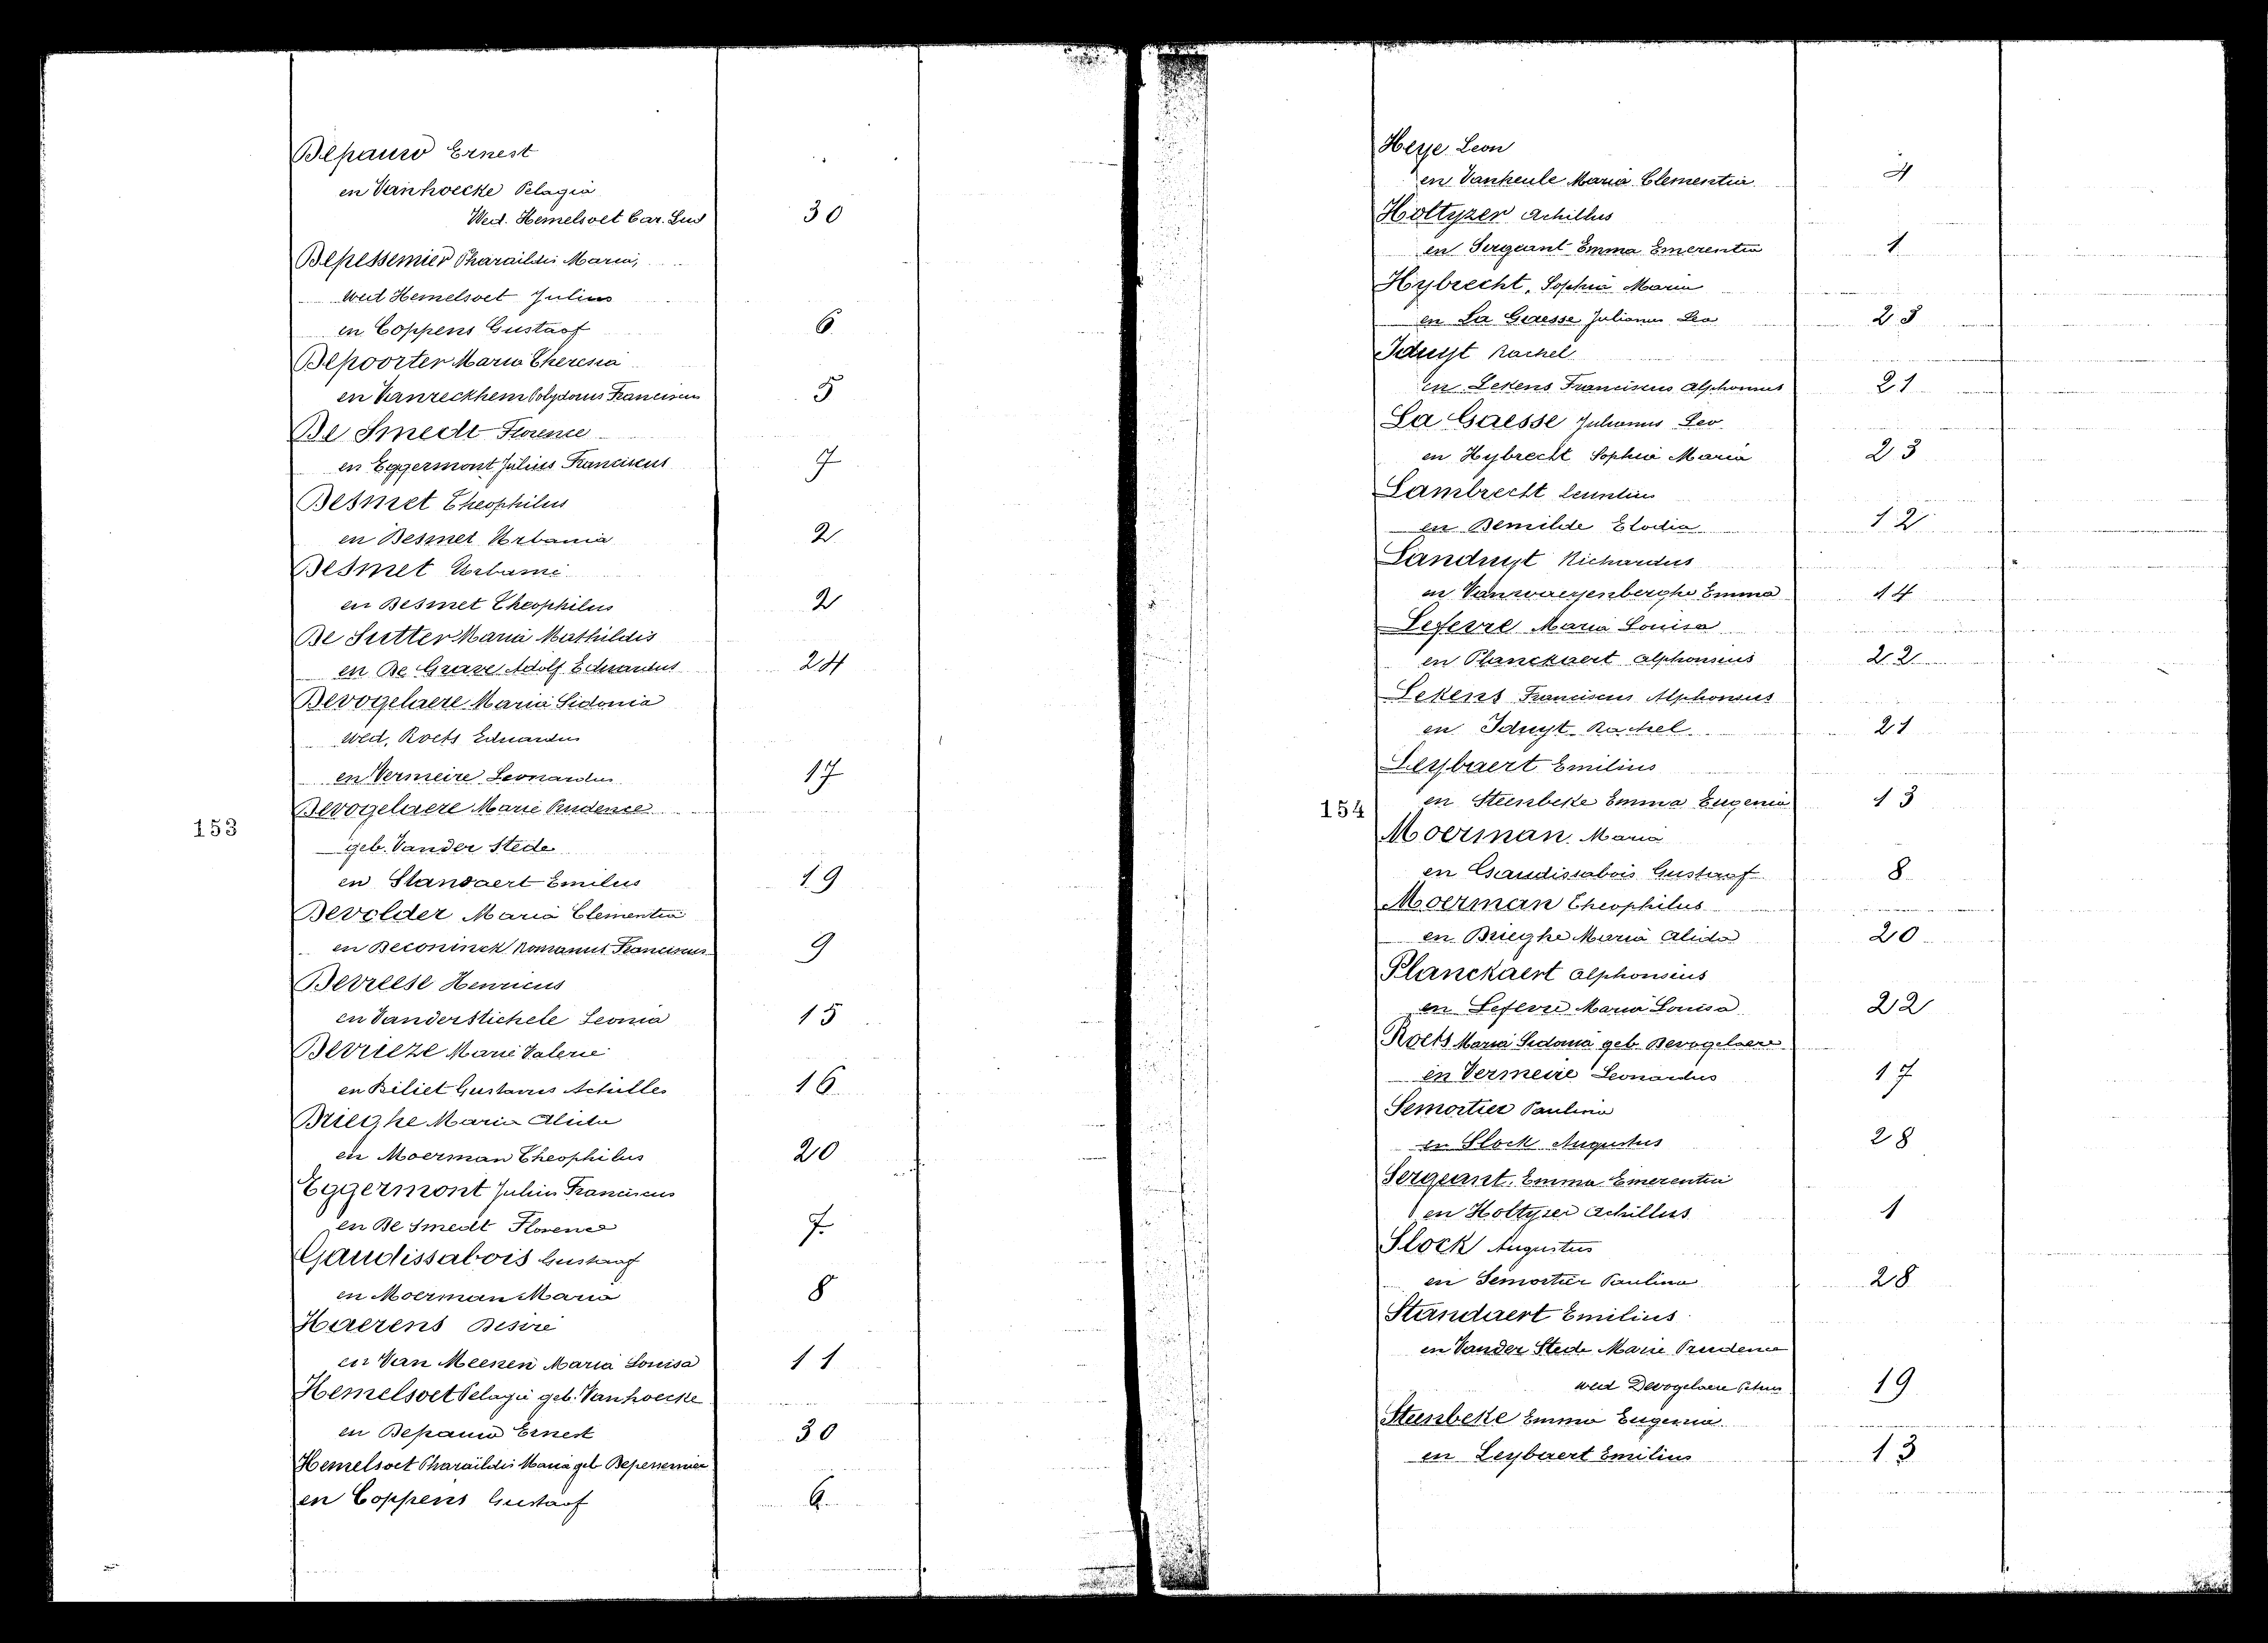 Depauw Ernest
en Vanhoecke Pelagia
Wed. Hemelsoet Car. Lud 30
Depessemier Pharaildis Maria,
wed Hemelsoet Julius
en Coppens Gustaaf 6
Depoorter Maria Theresia
en Vanreckhem Polydorus Franciscus 5
De Smedt Florence
en Eggermont Julius Franciscus 7
Desmet Theophilus
en Desmet Urbania 2
Desmet Urbanie
en Desmet Theophilus 2
De Sutter Maria Mathildis
en De Grave Adolf Eduardus 24
Devogelaere Maria Sidonia
wed. Roets Eduardus
en Vermeire Leonardus 17
Devogelaere Marie Prudence
153
geb. Vander Stede
en Standaert Emilus 19
Devolder Maria Clementia
en Deconinck Romanus Franciscus 9
Devreese Henricus
en Vanderstichele Leonia 15
Devrieze Marie Valerie
en Biliet Gustavus Achilles 16
Drieghe Maria Alida
en Moerman Theophilus 20
Eggermont Julius Franciscus
en De Smedt Florence 7.
Gaudissabois Gustaaf
en Moerman Maria 8
Haerens Desire
en Van Meenen Maria Louisa 11
Hemelsoet Pelagie geb. Vanhoecke
en Depauw Ernest 30
Hemelsoet Pharaildis Maria geb Depessemier
en Coppens Gustaaf 6
Heye Leon
en Vankeule Maria Clementia 4
Holtyzer Achillus
en Sergeant Emma Emerentia 1
Hybrecht, Sophia Maria
en La Gaesse Julianus Leo 23
Iduyt Rachel
en Lekens Franciscus Alphonsus 21
La Gaesse Julianus Leo
en Hybrecht Sophia Maria 23
Lambrecht
en Demilde Elodia 12
Landuyt Richardus
en Vanwaeyenberghe Emma 14
Lefevre Maria Louisa
en Planckaert Alphonsius 22
Lekens Franciscus Alphonsus
en Iduyt Rachel 21
Leybaert Emilius
154 en Steenbeke Emma Eugenia 13
Moerman Maria
en Gaudissabois Gustaaf 8
Moerman Theophilus
en Drieghe Maria Alida 20
Planckaert Alphonsius
en Lefevre Maria Louisa 22
Roets Maria Sidonia geb. Devogelaere
en Vermeire Leonardus 17
Semortier Paulina
en Slock Augustus 28
Sergeant, Emma Emerentia
en Holtyzer Achillus 1
Slock Augustus
en Semortier Paulina 28
Standaert Emilius
en Vander Stede Marie Prudence
wed Devogelaere Petrus 19
Steenbeke Emma Eugenia
en Leybaert Emilius 13